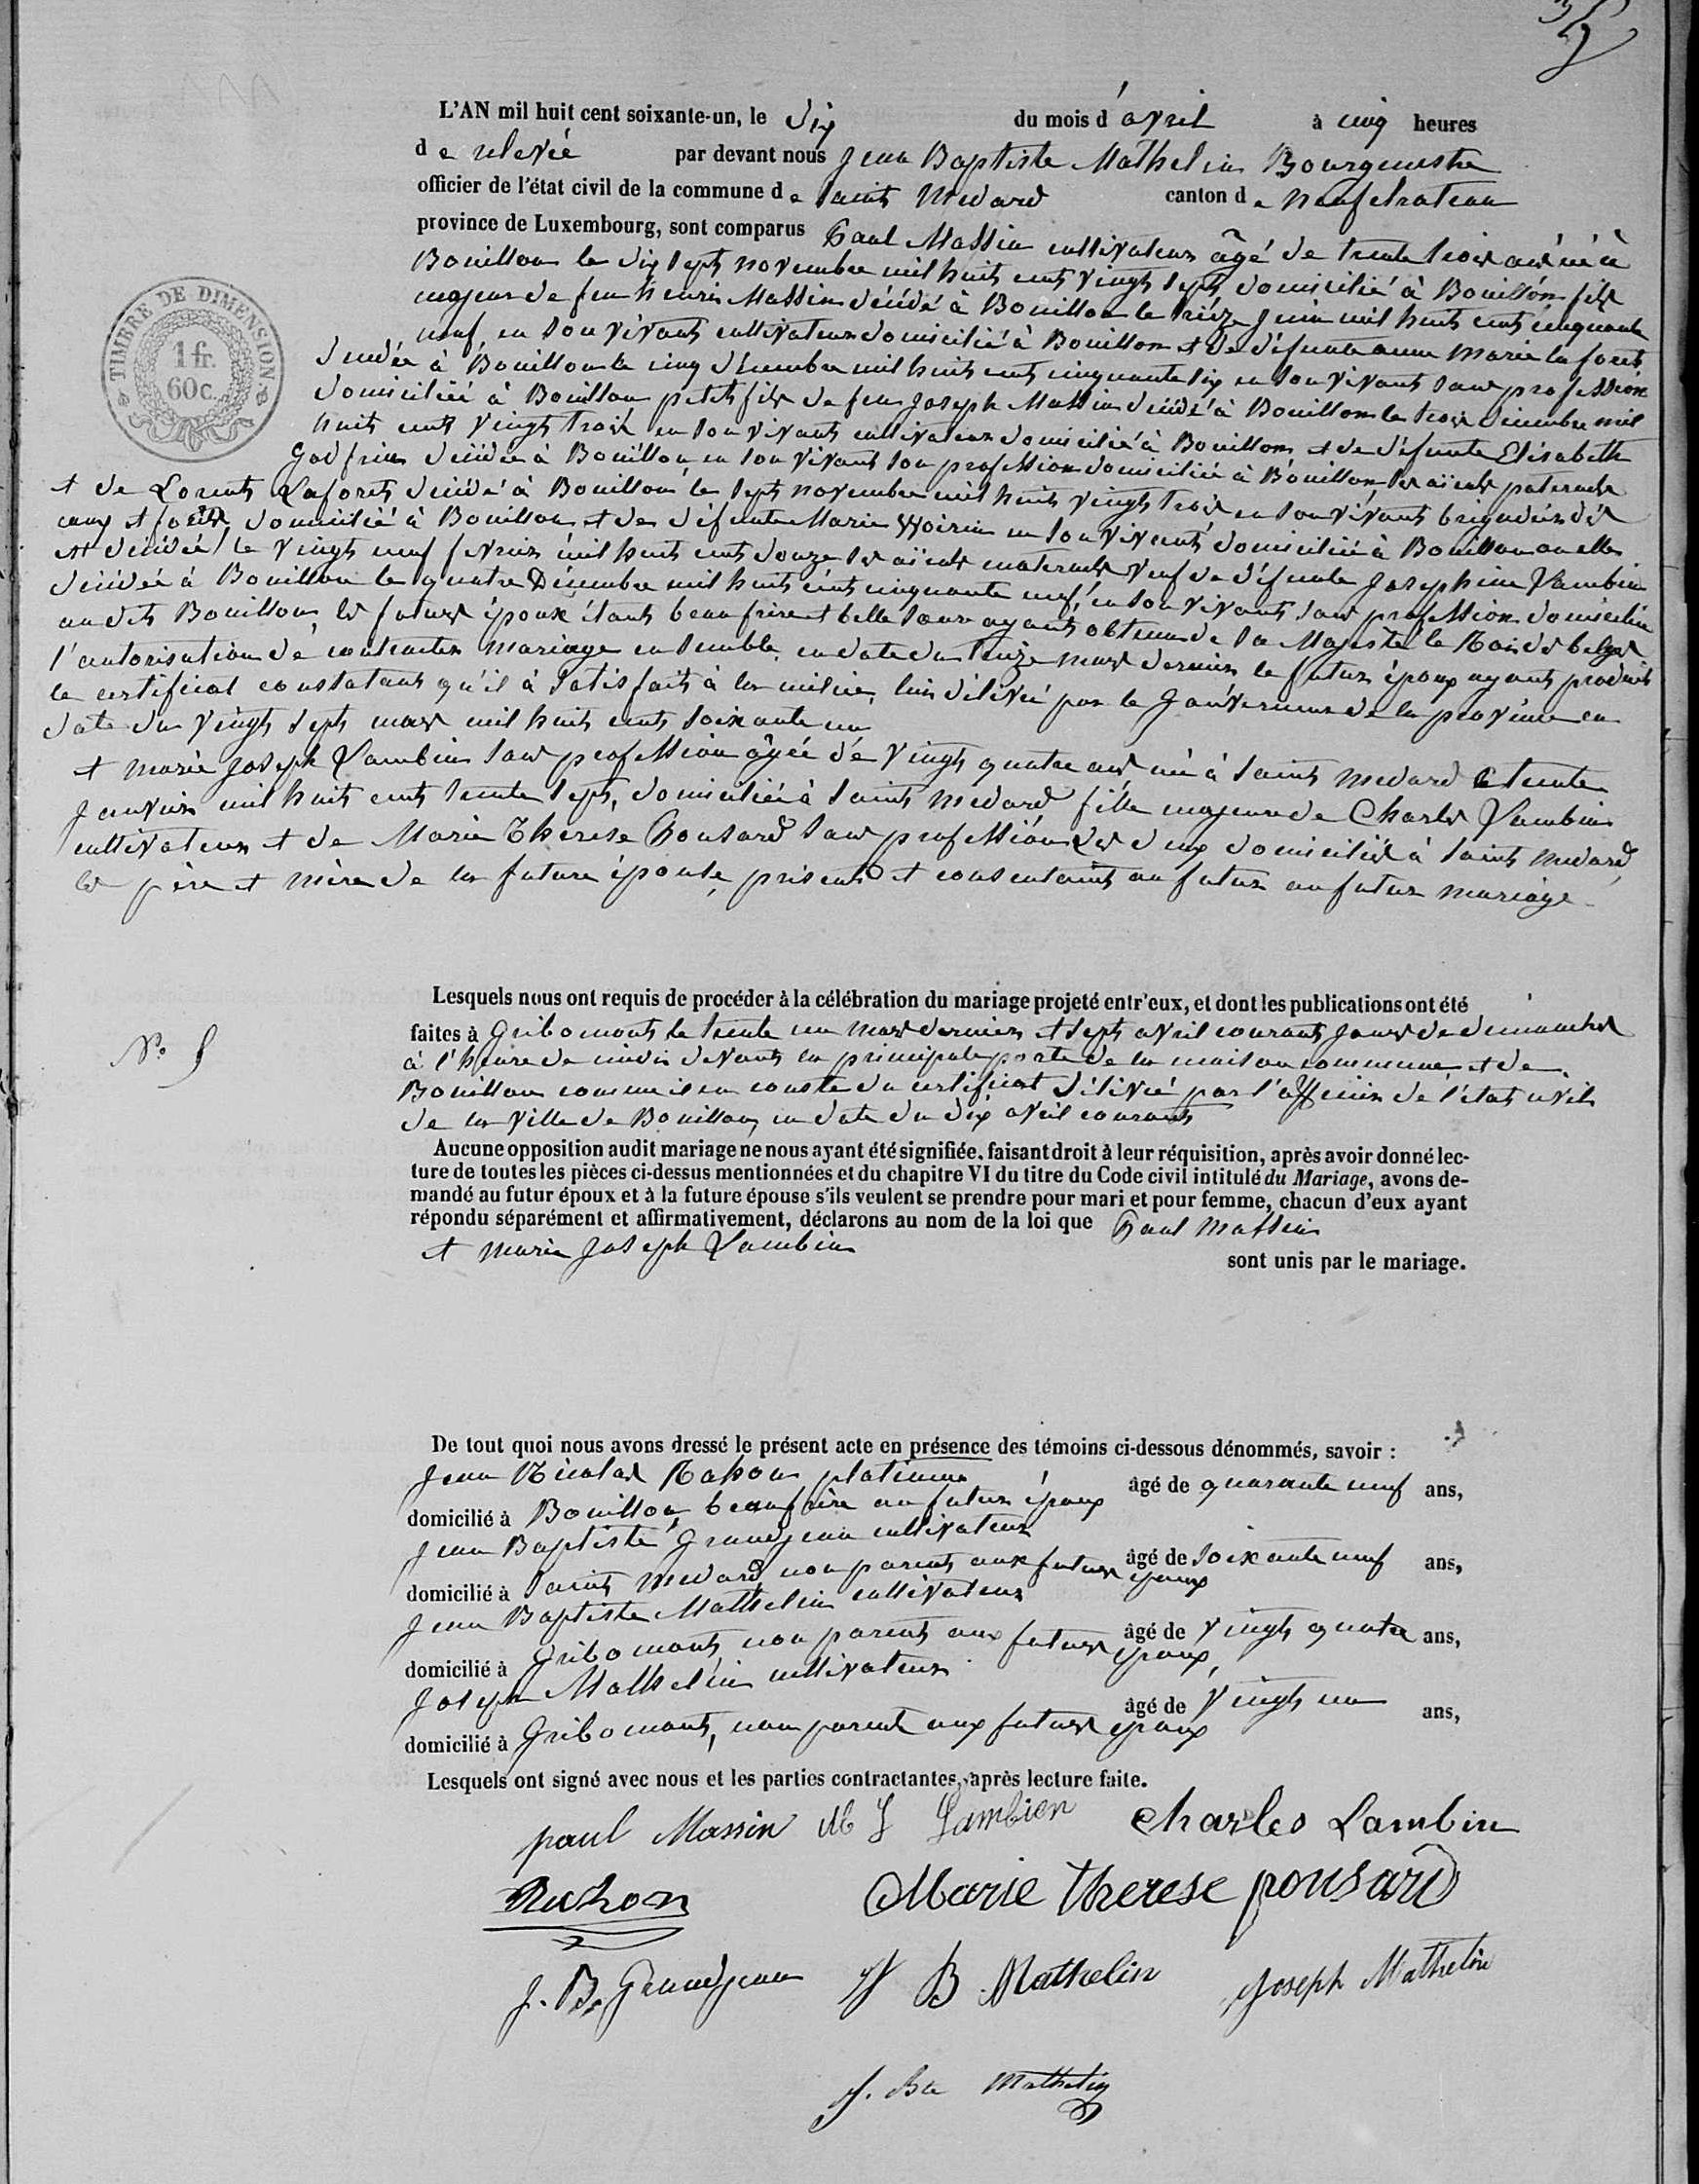 L'AN mil huit cent soixante-un, le dix du mois d'avril à cinq heures
de relevée par devant nous Jean Baptiste Mathelin Bourgmestre
officier de l'état civil de la commune de saint Medard canton de Neufchateau
province de Luxembourg, sont comparus Paul Massin cultivateur âgé de trente trois ans né à
Bouillon le dix sept novembre mil huit cent vingt sept domicilié à Bouillon fils
majeur de feu henri Massin décédé à Bouillon le treize juin mil huit cent cinquante
neuf, en son vivant cultivateur domicilié à Bouillon et de défunte anne Marie laforet,
décédée à Bouillon le cinq décembre mil huit cent cinquante six en son vivant sans profession
domiciliée à Bouillon petit fils de feu Joseph Massin décédé à Bouillon le trois décembre mil
huit cent vingt trois en son vivant cultivateur domicilié à Bouillon et de défunte Elisabeth
Godfrin décédée à Bouillon en son vivant son profession domiciliée à Bouillon, ses aïeuls paternels
et de Lorent Laforet décédé à Bouillon le sept novembre mil huit vingt trois en son vivant brigadier des
eaux et forêts domicilié à Bouillon et de défunte Marie Woirin en son vivant domiciliée à Bouillon ou elle
est décédée le vingt neuf fevrier mil huit cent douze ses aïeuls maternels veuf de défunte Josephine Lambin
décédée à Bouillon le quatre Décembre mil huit cent cinquante neuf, en son vivant sans profession domiciliée
au dit Bouillon, les futurs époux étant beau frère et belle sœur ayant obtenu de sa Majesté le Roi des belges
l'autorisation de contracter mariage ensemble en date du treize mars dernier le futur époux ayant produit
le certificat constatant qu'il à satisfait à la milice, lui délivré par le Gouverneur de la province en
date du vingt sept mars mil huit cent soixante un
et marie Joseph Lambin sans profession âgée de vingt quatre ans né à saint medard le trente
Janvier mil huit cent trente sept, domiciliée à saint medard fille majeure de Charles Lambin
cultivateur et de Marie Thérèse Ponsard sans profession les deux domiciliés à saint medard,
les père et mère de la future épouse, présent et consentant au futur au futur mariage
Lesquels nous ont requis de procéder à la célébration du mariage projeté entr'eux, et dont les publications ont été
faites à Gribomont le trente un mars dernier et sept avril courant, jours de dimanches
N° 5
à l'heure de midi devant la principale porte de la maison commune et de
Bouillon comme il en conste du certificat délivré par l'officier de l'état civil
de la ville de Bouillon, en date du dix avril courant
Aucune opposition audit mariage ne nous ayant été signifiée, faisant droit à leur réquisition, après avoir donné lec-
ture de toutes les pièces ci-dessus mentionnées et du chapitre VI du titre du Code civil intitulé du Mariage, avons de-
mandé au futur époux et à la future épouse s'ils veulent se prendre pour mari et pour femme, chacun d'eux ayant
répondu séparément et affirmativement, déclarons au nom de la loi que Paul Massin
et marie Joseph Lambin
sont unis par le mariage.
De tout quoi nous avons dressé le présent acte en présence des témoins ci-dessous dénommés, savoir :
Jean Nicolas platineur âgé de quarante neuf ans,
domicilié à Bouillon, beaufrère au futur époux
Jean Baptiste Grandjean cultivateur âgé de soixante neuf ans,
domicilié à saint medard non parent aux futurs époux
Jean Baptiste Mathelin cultivateur âgé de vingt quatre ans,
domicilié à Gribomont, non parent aux futurs époux,
Joseph Mathelin cultivateur âgé de vingt un ans,
domicilié à Gribomont, non parent aux futurs époux
Lesquels ont signé avec nous et les parties contractantes, après lecture faite.
paul Massin M J Lambien Charles Lambin
Marie therese ponsard
J. B. Grandjean J B Mathelin Joseph Mathelin
J. Bte Mathelin
TIMBRE DE DIMENSION.
1 fr.
60 c.